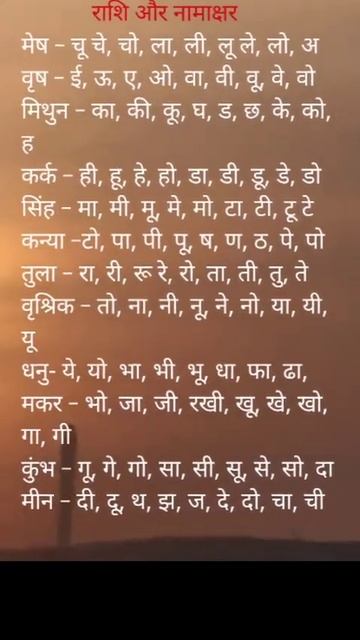 राशि और नामाक्षर
मेष – चू चे, चो, ला, ली, लू ले, लो, अ
वृष – ई, ऊ, ए, ओ, वा, वी, वू, वे, वो
मिथुन – का, की, कू, घ, ड, छ, के, को,
ह
कर्क – ही, हू, हे, हो, डा, डी, डू, डे, डो
सिंह – मा, मी, मू, मे, मो, टा, टी, टू टे
कन्या –टो, पा, पी, पू, ष, ण, ठ, पे, पो
तुला – रा, री, रू रे, रो, ता, ती, तु, ते
वृश्चिक – तो, ना, नी, नू, ने, नो, या, यी,
यू
धनु- ये, यो, भा, भी, भू, धा, फा, ढा,
मकर – भो, जा, जी, रखी, खू, खे, खो,
गा, गी
कुंभ – गू, गे, गो, सा, सी, सू, से, सो, दा
मीन – दी, दू, थ, झ, ज, दे, दो, चा, ची